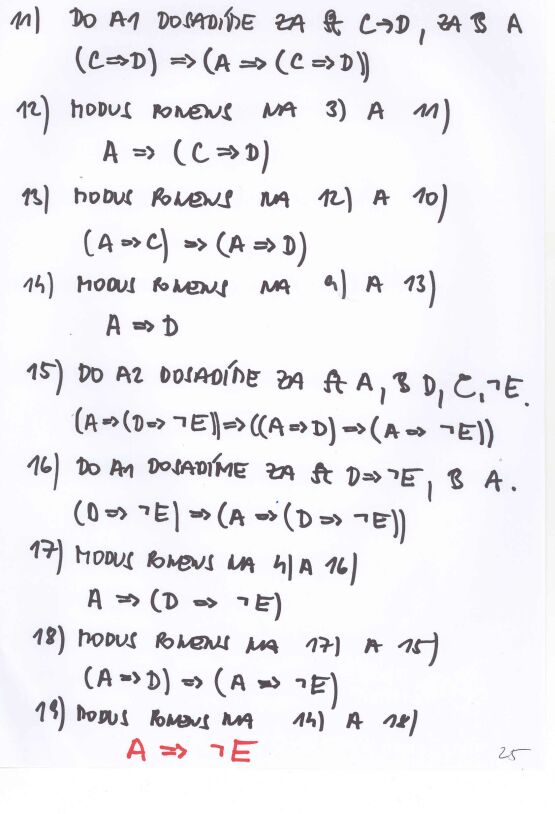 11) DO A1 DOSADÍME ZA 𝒜 C⇒D, ZA ℬ A
(C⇒D) ⇒ (A ⇒ (C⇒D))
12) MODUS PONENS NA 3) A 11)
A ⇒ (C ⇒ D)
13) MODUS PONENS NA 12) A 10)
(A ⇒ C) ⇒ (A ⇒ D)
14) MODUS PONENS NA 9) A 13)
A ⇒ D
15) DO A2 DOSADÍME ZA 𝒜 A, ℬ D, 𝒞, ¬E.
(A ⇒ (D ⇒ ¬E)) ⇒ ((A ⇒ D) ⇒ (A ⇒ ¬E))
16) DO A1 DOSADÍME ZA 𝒜 D ⇒ ¬E, ℬ A.
(D ⇒ ¬E) ⇒ (A ⇒ (D ⇒ ¬E))
17) MODUS PONENS NA 4) A 16)
A ⇒ (D ⇒ ¬E)
18) MODUS PONENS NA 17) A 15)
(A ⇒ D) ⇒ (A ⇒ ¬E)
19) MODUS PONENS NA 14) A 18)
A ⇒ ¬E
25